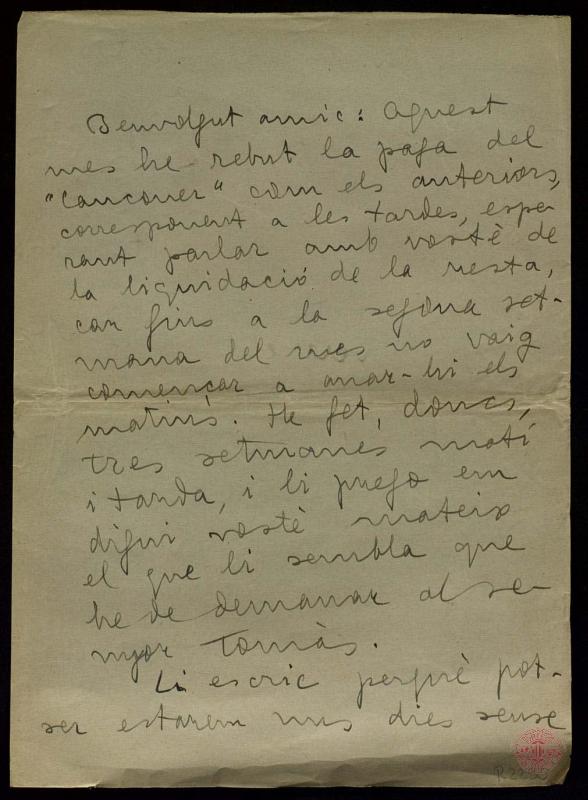 Benvolgut amic: Aquest
mes he rebut la paga del
"Cançoner" com els anteriors,
corresponent a les tardes, espe-
rant parlar amb vostè de
la liquidació de la resta,
car fins a la segona set-
mana del mes no vaig
començar a anar-hi els
matins. He fet, doncs,
tres setmanes matí
i tarda, i li prego em
digui vostè mateix
el que li sembla que
he de demanar al se-
nyor Tomàs.
Li escric perquè pot-
ser estarem uns dies sense